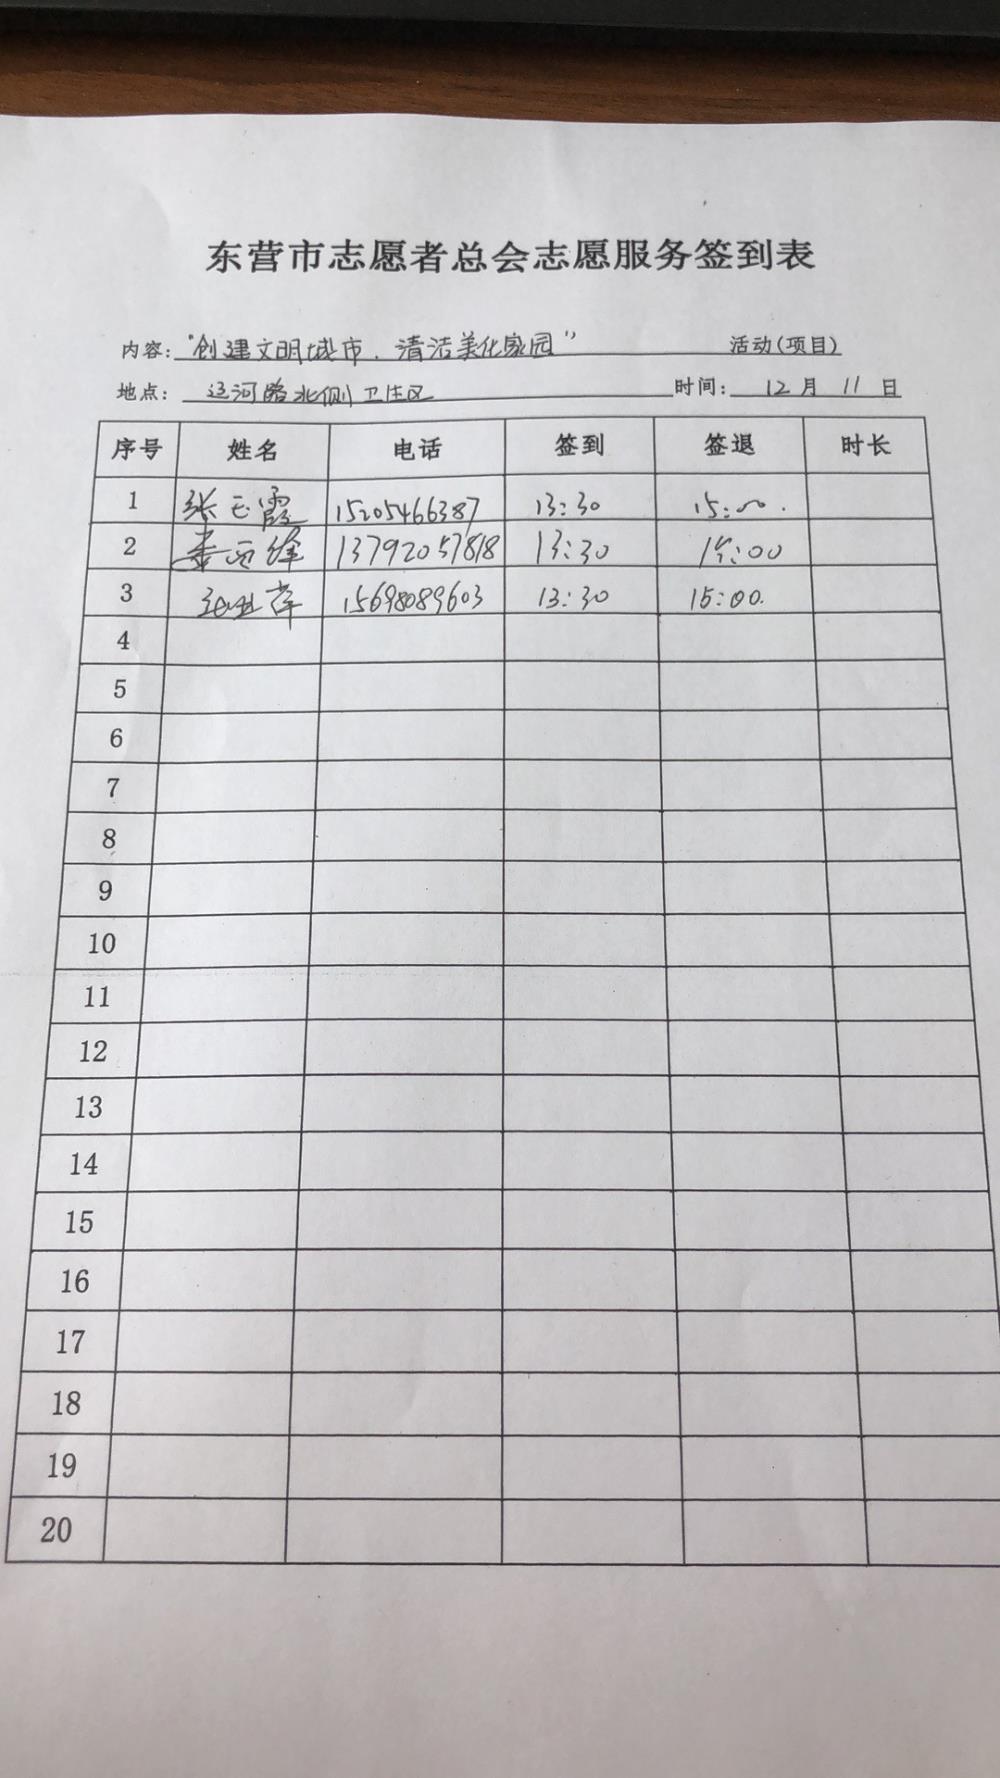 东营市志愿者总会志愿服务签到表
内容: "创建文明城市、清洁美化家园" 活动(项目)
地点: 运河路北侧卫生区 时间: 12 月 11 日
序号 姓名 电话 签到 签退 时长
1 张玉霞 15205466387 13:30 15:00.
2 13792057818 13:30 15:00
3 15698089603 13:30 15:00.
4
5
6
7
8
9
10
11
12
13
14
15
16
17
18
19
20